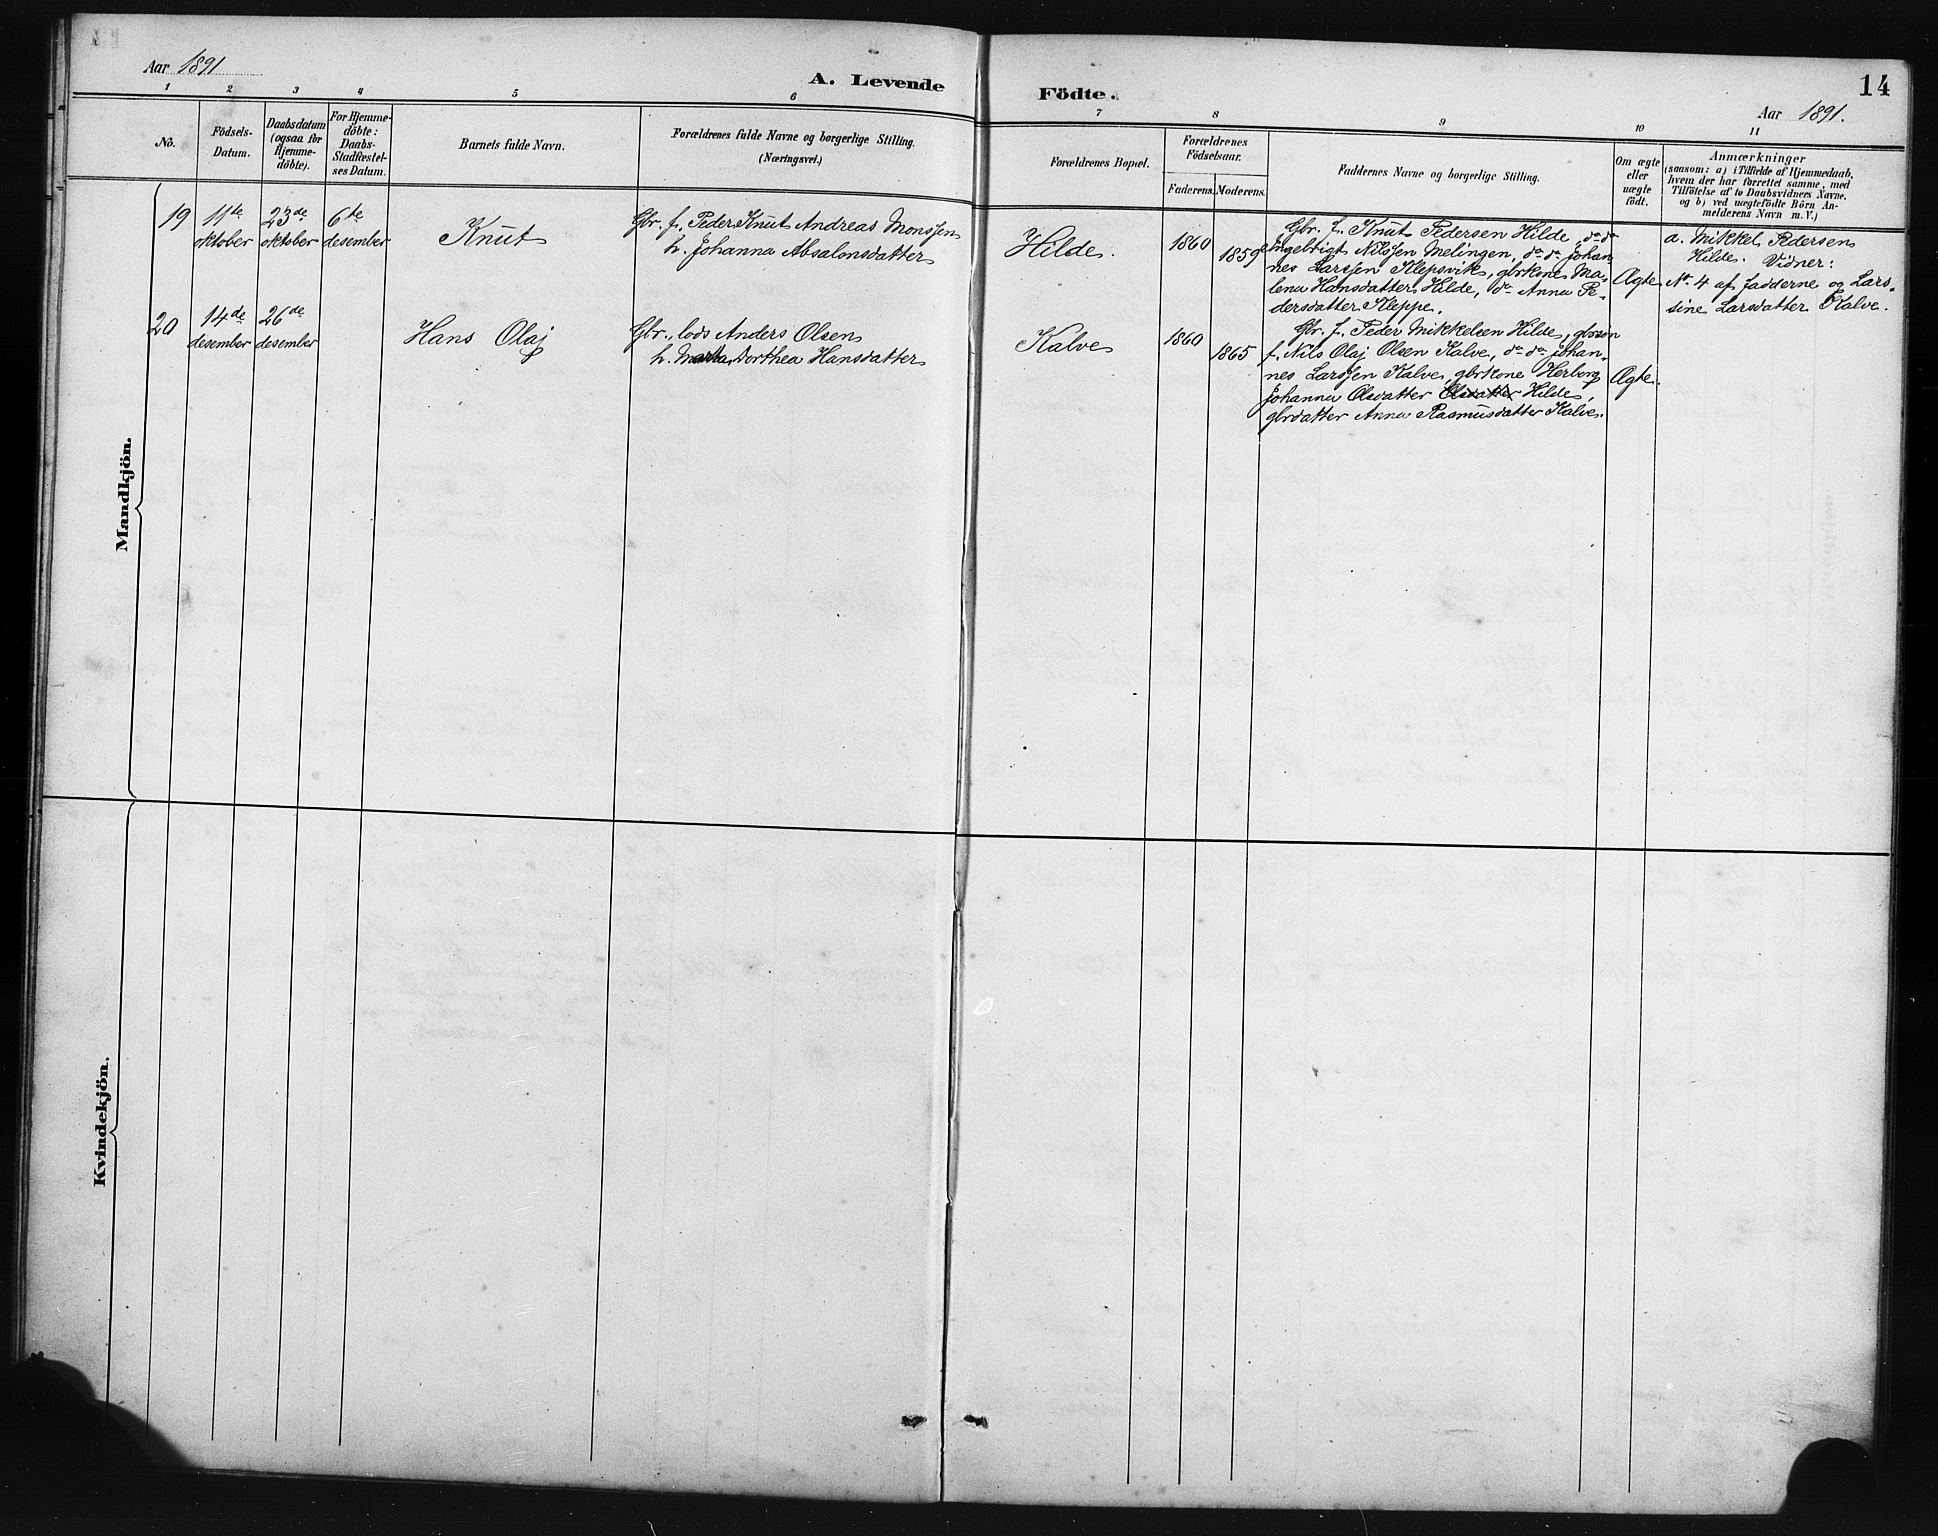 Aar 1891
A. Levende
Födte.
14
Aar 1891.
1
2
3
4
5
6
7
8
9
10
11
No.
Födsels-
Datum.
Daabsdatum
(ogsaa for
Hjemme-
döbte).
For Hjemme-
döbte:
Daabs-
Stadfæstel-
ses Datum.
Barnets fulde Navn.
Forældrenes fulde Navne og borgerlige Stilling.
(Næringsvei.)
Forældrenes Bopæl.
Forældrenes
Födselsaar.
Faderens.
Moderens.
Faddernes Navne og borgerlige Stilling.
Om ægte
eller
uægte
födt.
Anmærkninger
(saasom: a) i Tilfælde af Hjemmedaab,
hvem der har forrettet samme, med
Tilföielse af to Daabsvidners Navne,
og b) ved uægtefödte Börn An-
melderens Navn m. V.)
Mandkjön.
19
11te
oktober
23de
oktober
6te
desember
Knut
Gbr. f. Peder Knut Andreas Monssen
h. Johanna Absalonsdatter
Hilde.
1860
1859
Gbr. f. Knut Pedersen Hilde, do do
Ingebrigt Nilssen Melingen, do do Johan-
nes Larssen Klepsvik, gbrkone Ma-
lena Hansdatter Hilde, do Anna Pe-
dersdatter Kleppe.
Ægte
a. Mikkel Pedersen
Hilde. Vidner:
No 4 af fadderne og Lars-
sine Larsdatter Kalve.
20
14de
desember
26de
desember
Hans Olaj
Gbr., lods Anders Olsen
h. Marta Dorthea Hansdatter
Kalve
1860
1865
Gbr. f. Peder Mikkelsen Hilde, gbrsøn
f. Nils Olaj Olsen Kalve, do do Johan-
nes Larssen Kalve, gbrkone Herborg
Johanna Olsdatter Olsdatter Hilde,
gbrdatter Anna Rasmusdatter Kalve.
Ægte.
Kvindekjön.